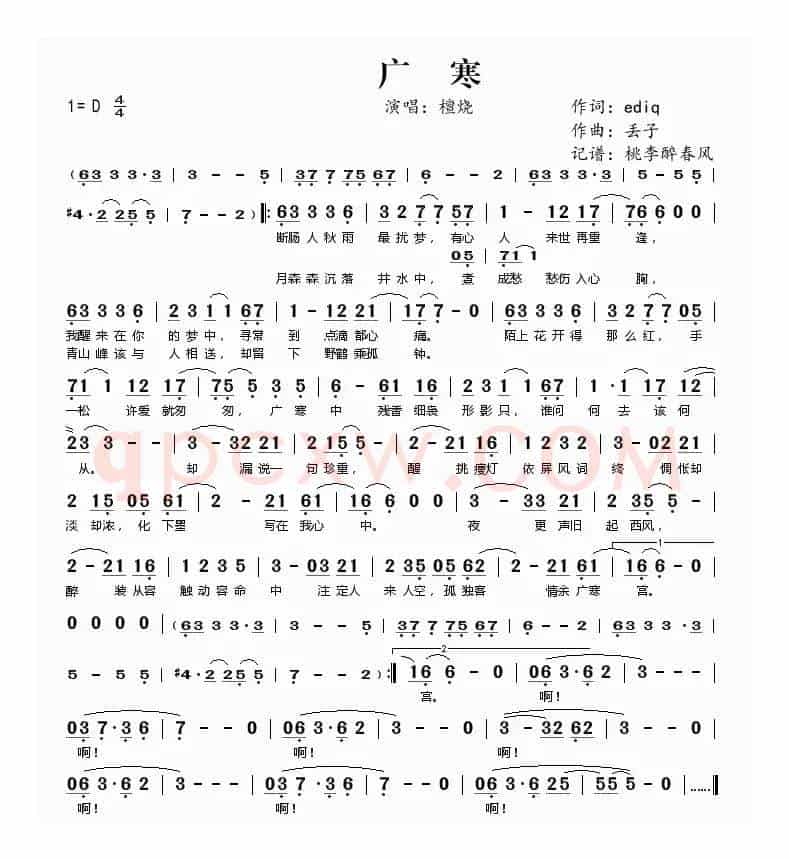 广 寒
1= D 4/4 演唱：檀烧 作词：ediq
作曲：丢子
记谱：桃李醉春风
( 63 3 3 · 3 | 3 - - 5 | 37 7 75 67 | 6 - - 2 | 63 3 3 · 3 | 5 - 5 5 |
#4 · 2 25 5 | 7 - - 2 ) |: 63 3 3 6 | 3 2 7 7 57 | 1 - 12 17 | 76 6 0 0 |
断肠 人 秋雨 最 扰 梦， 有心 人 来世 再重 逢，
05 | 71 1
月森 森 沉落 井 水 中， 煮 成愁 愁伤 入心 胸，
63 3 3 6 | 2 3 1 1 67 | 1 - 12 21 | 17 7 - 0 | 63 3 3 6 | 3 2 7 7 05 |
我醒 来 在 你 的 梦 中， 寻常 到 点滴 都心 痛。 陌上 花 开 得 那 么 红， 手
青山 峰 该 与 人 相 送， 却留 下 野鹤 乘孤 钟。
71 1 12 17 | 75 5 3 5 | 6 - - 61 | 2 3 1 67 | 1 · 1 17 12 |
一松 许爱 就匆 匆， 广 寒 中 残香 细袅 形 影 只， 谁问 何 去 该 何
23 3 - 3 | 3 - 32 21 | 2 15 5 - | 2 - 21 16 | 1 2 3 2 | 3 - 02 21 |
从。 却 漏说 一 句 珍 重， 醒 挑 瘦灯 依 屏 风 词 终 惆 怅却
2 15 05 61 | 2 - 21 61 | 16 6 0 0 | 3 - 33 21 | 2 35 5 - |
淡 却浓， 化 下墨 写在 我心 中。 夜 更 声旧 起 西风，
2 - 21 16 | 1 2 3 5 | 3 - 03 21 | 2 35 05 62 | 2 - 21 61 | 16 6 - 0 |
1
醉 装 从容 触 动 容 命 中 注 定人 来 人空， 孤 独客 情余 广寒 宫。
0 0 0 0 | ( 63 3 3 · 3 | 3 - - 5 | 37 7 75 67 | 6 - - 2 | 63 3 3 · 3 |
2
5 - 5 5 | #4 · 2 25 5 | 7 - - 2 ) :| 16 6 - 0 | 06 3 · 6 2 | 3 - - - |
宫。 啊！
03 7 · 3 6 | 7 - - 0 | 06 3 · 6 2 | 3 - - 0 | 3 - 32 62 | 3 - - 0 |
啊！ 啊！ 啊！
06 3 · 6 2 | 3 - - - | 03 7 · 3 6 | 7 - - 0 | 06 3 · 6 25 | 55 5 - 0 | ......||
啊！ 啊！ 啊！
qpcxw.COM